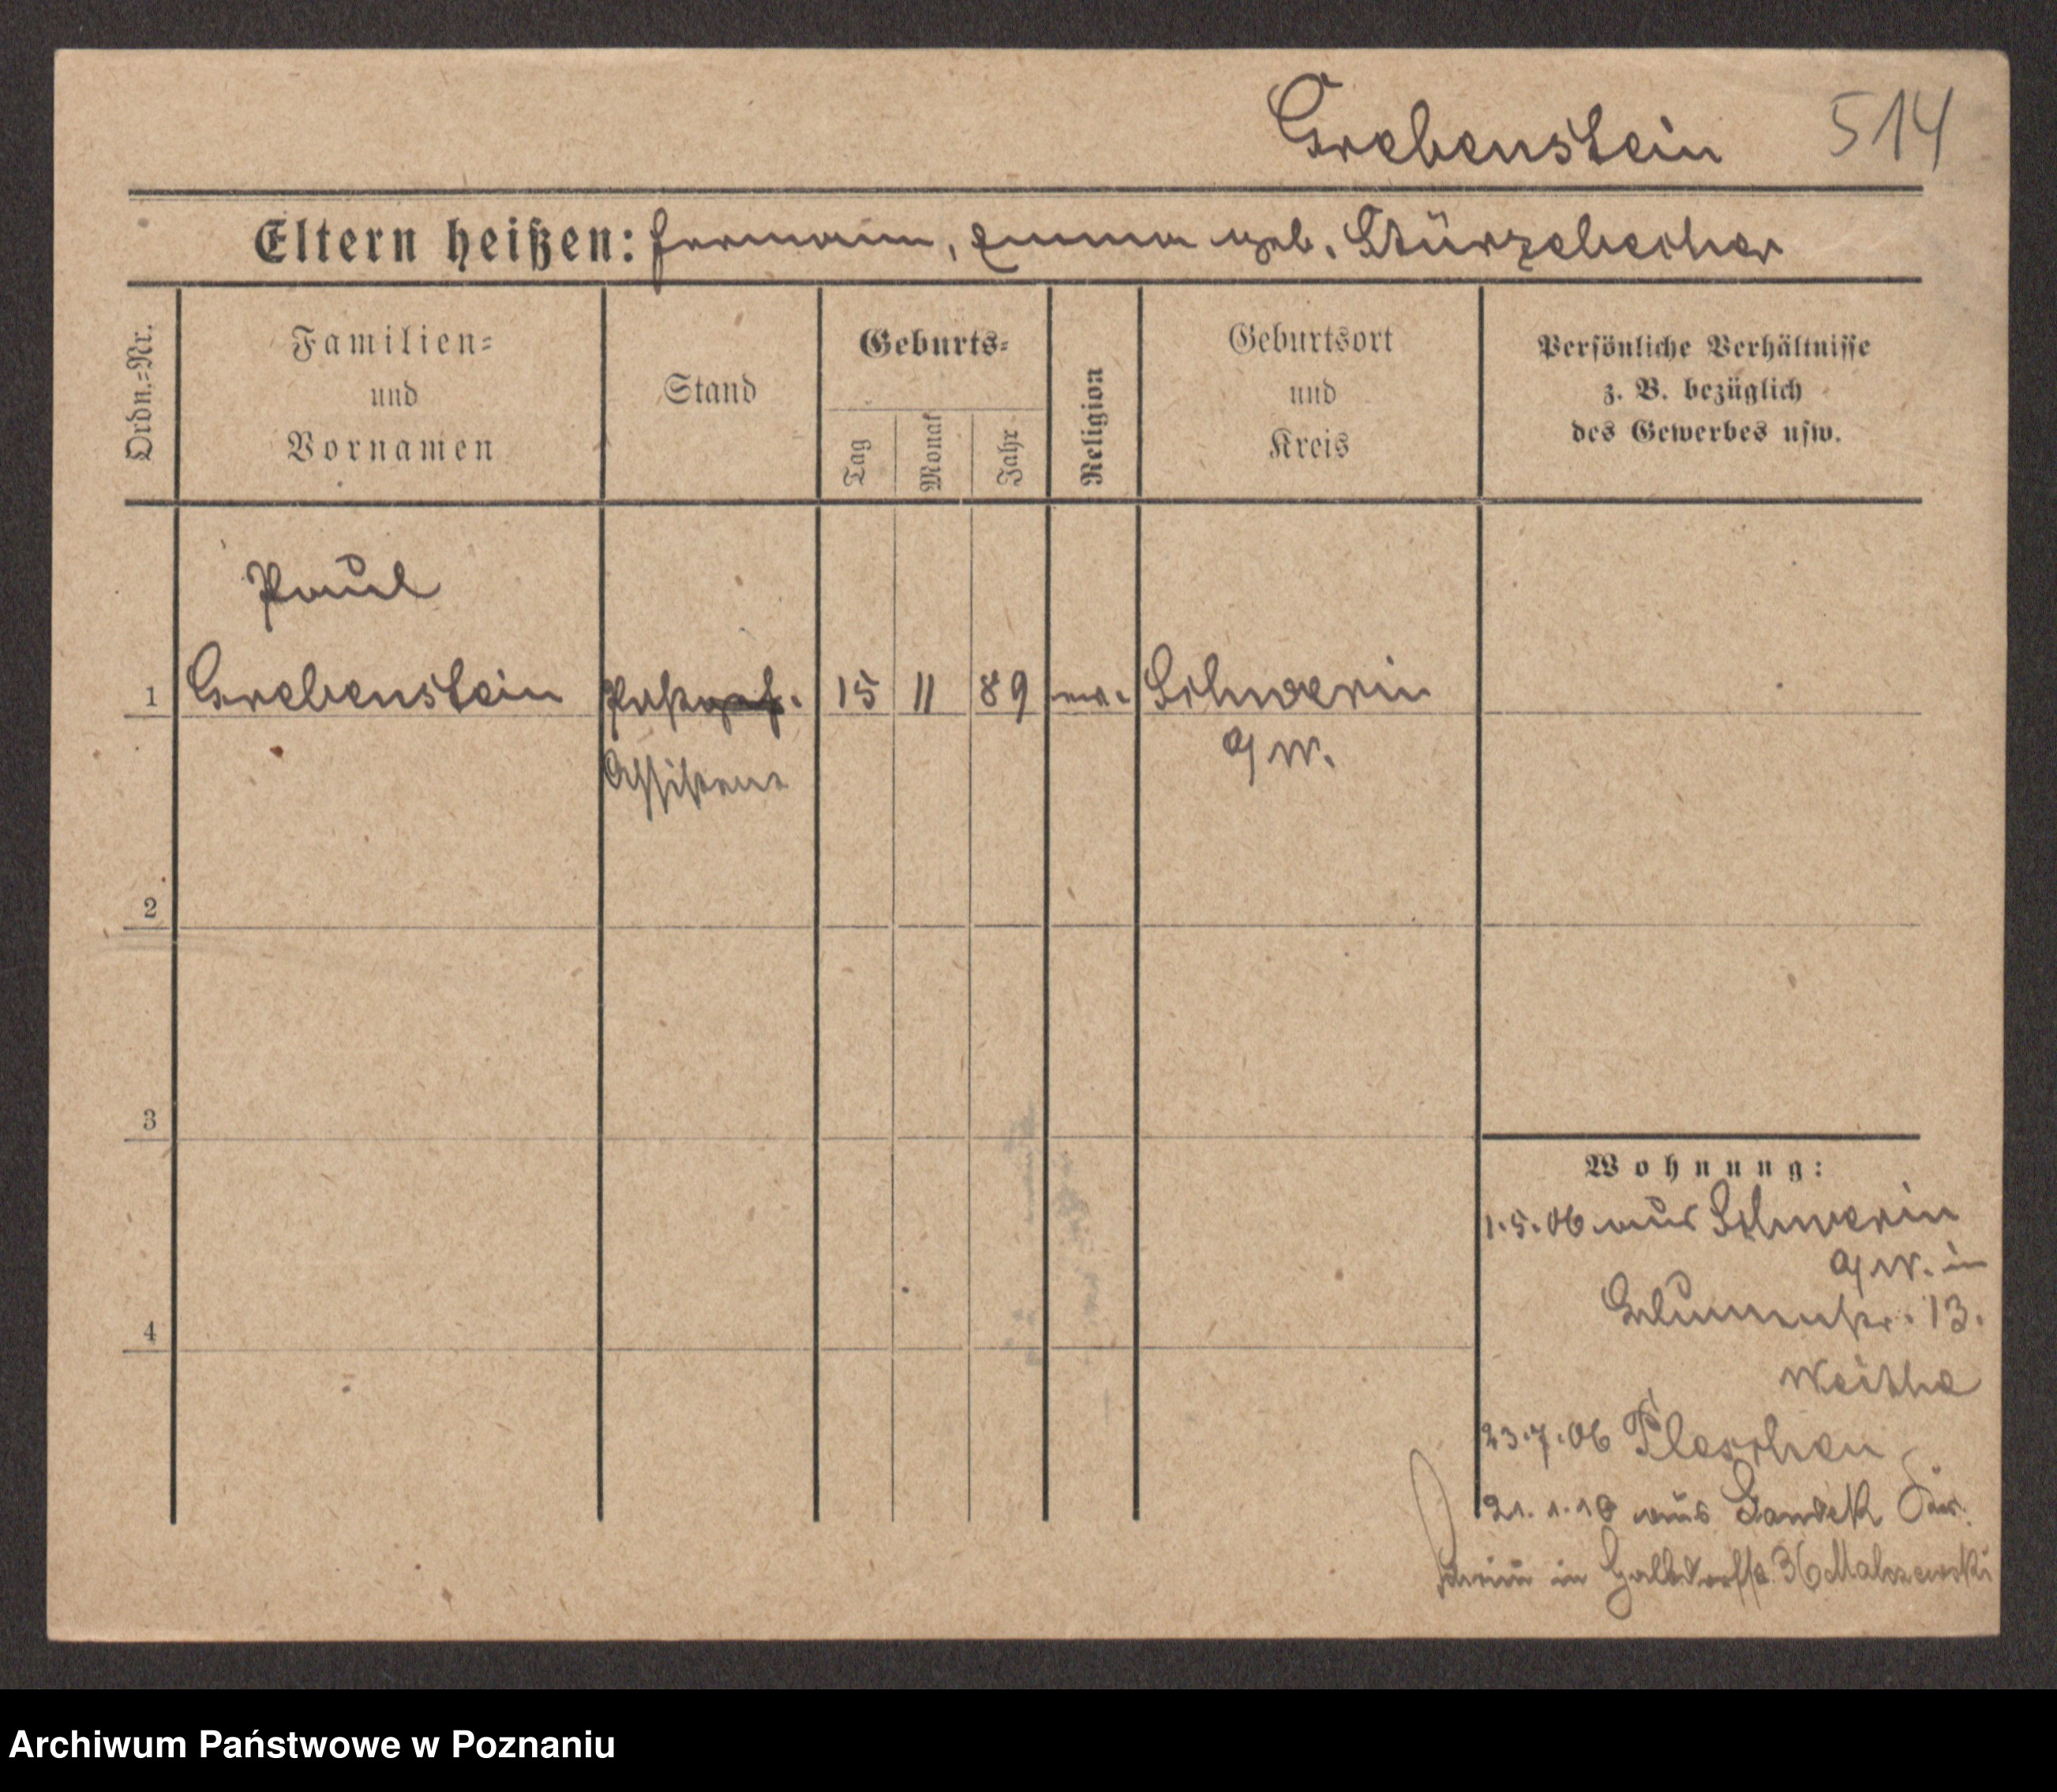 Grebenstein 514
Eltern heißen: Hermann, Emma geb. Stürzebecher
Ordn.=Nr.
Familien=
und
Vornamen
Stand
Geburts=
Tag
Monat
Jahr
Religion
Geburtsort
und
Kreis
Persönliche Verhältnisse
z. B. bezüglich
des Gewerbes usw.
Paul
1 Grebenstein Postgeh. 15 11 89 ev. Schwerin
Assistent a/W.
2
3
4
Wohnung:
1.5.06 aus Schwerin
a/W. in
Blumenstr. 13.
23.7.06 Pleschen
21.1.10 aus
in Halbdorfstr. 36